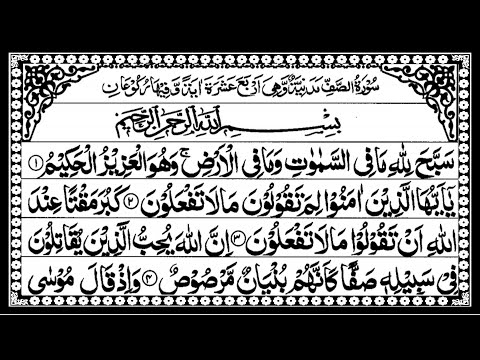 سُوْرَةُ الصَّفِّ مَدَنِيَّةٌ وَّهِيَ اَرْبَعَ عَشَرَةَ اٰيَةً وَّفِيْهَا رُكُوْعَانِ
بِسْمِ اللّٰهِ الرَّحْمٰنِ الرَّحِيْمِ
سَبَّحَ لِلّٰهِ مَا فِي السَّمٰوٰتِ وَمَا فِي الْاَرْضِ ۚ وَهُوَ الْعَزِيْزُ الْحَكِيْمُ ۝۱
يٰۤاَيُّهَا الَّذِيْنَ اٰمَنُوْا لِمَ تَقُوْلُوْنَ مَا لَا تَفْعَلُوْنَ ۝۲ كَبُرَ مَقْتًا عِنْدَ
اللّٰهِ اَنْ تَقُوْلُوْا مَا لَا تَفْعَلُوْنَ ۝۳ اِنَّ اللّٰهَ يُحِبُّ الَّذِيْنَ يُقَاتِلُوْنَ
فِيْ سَبِيْلِهٖ صَفًّا كَاَنَّهُمْ بُنْيَانٌ مَّرْصُوْصٌ ۝۴ وَاِذْ قَالَ مُوْسٰى